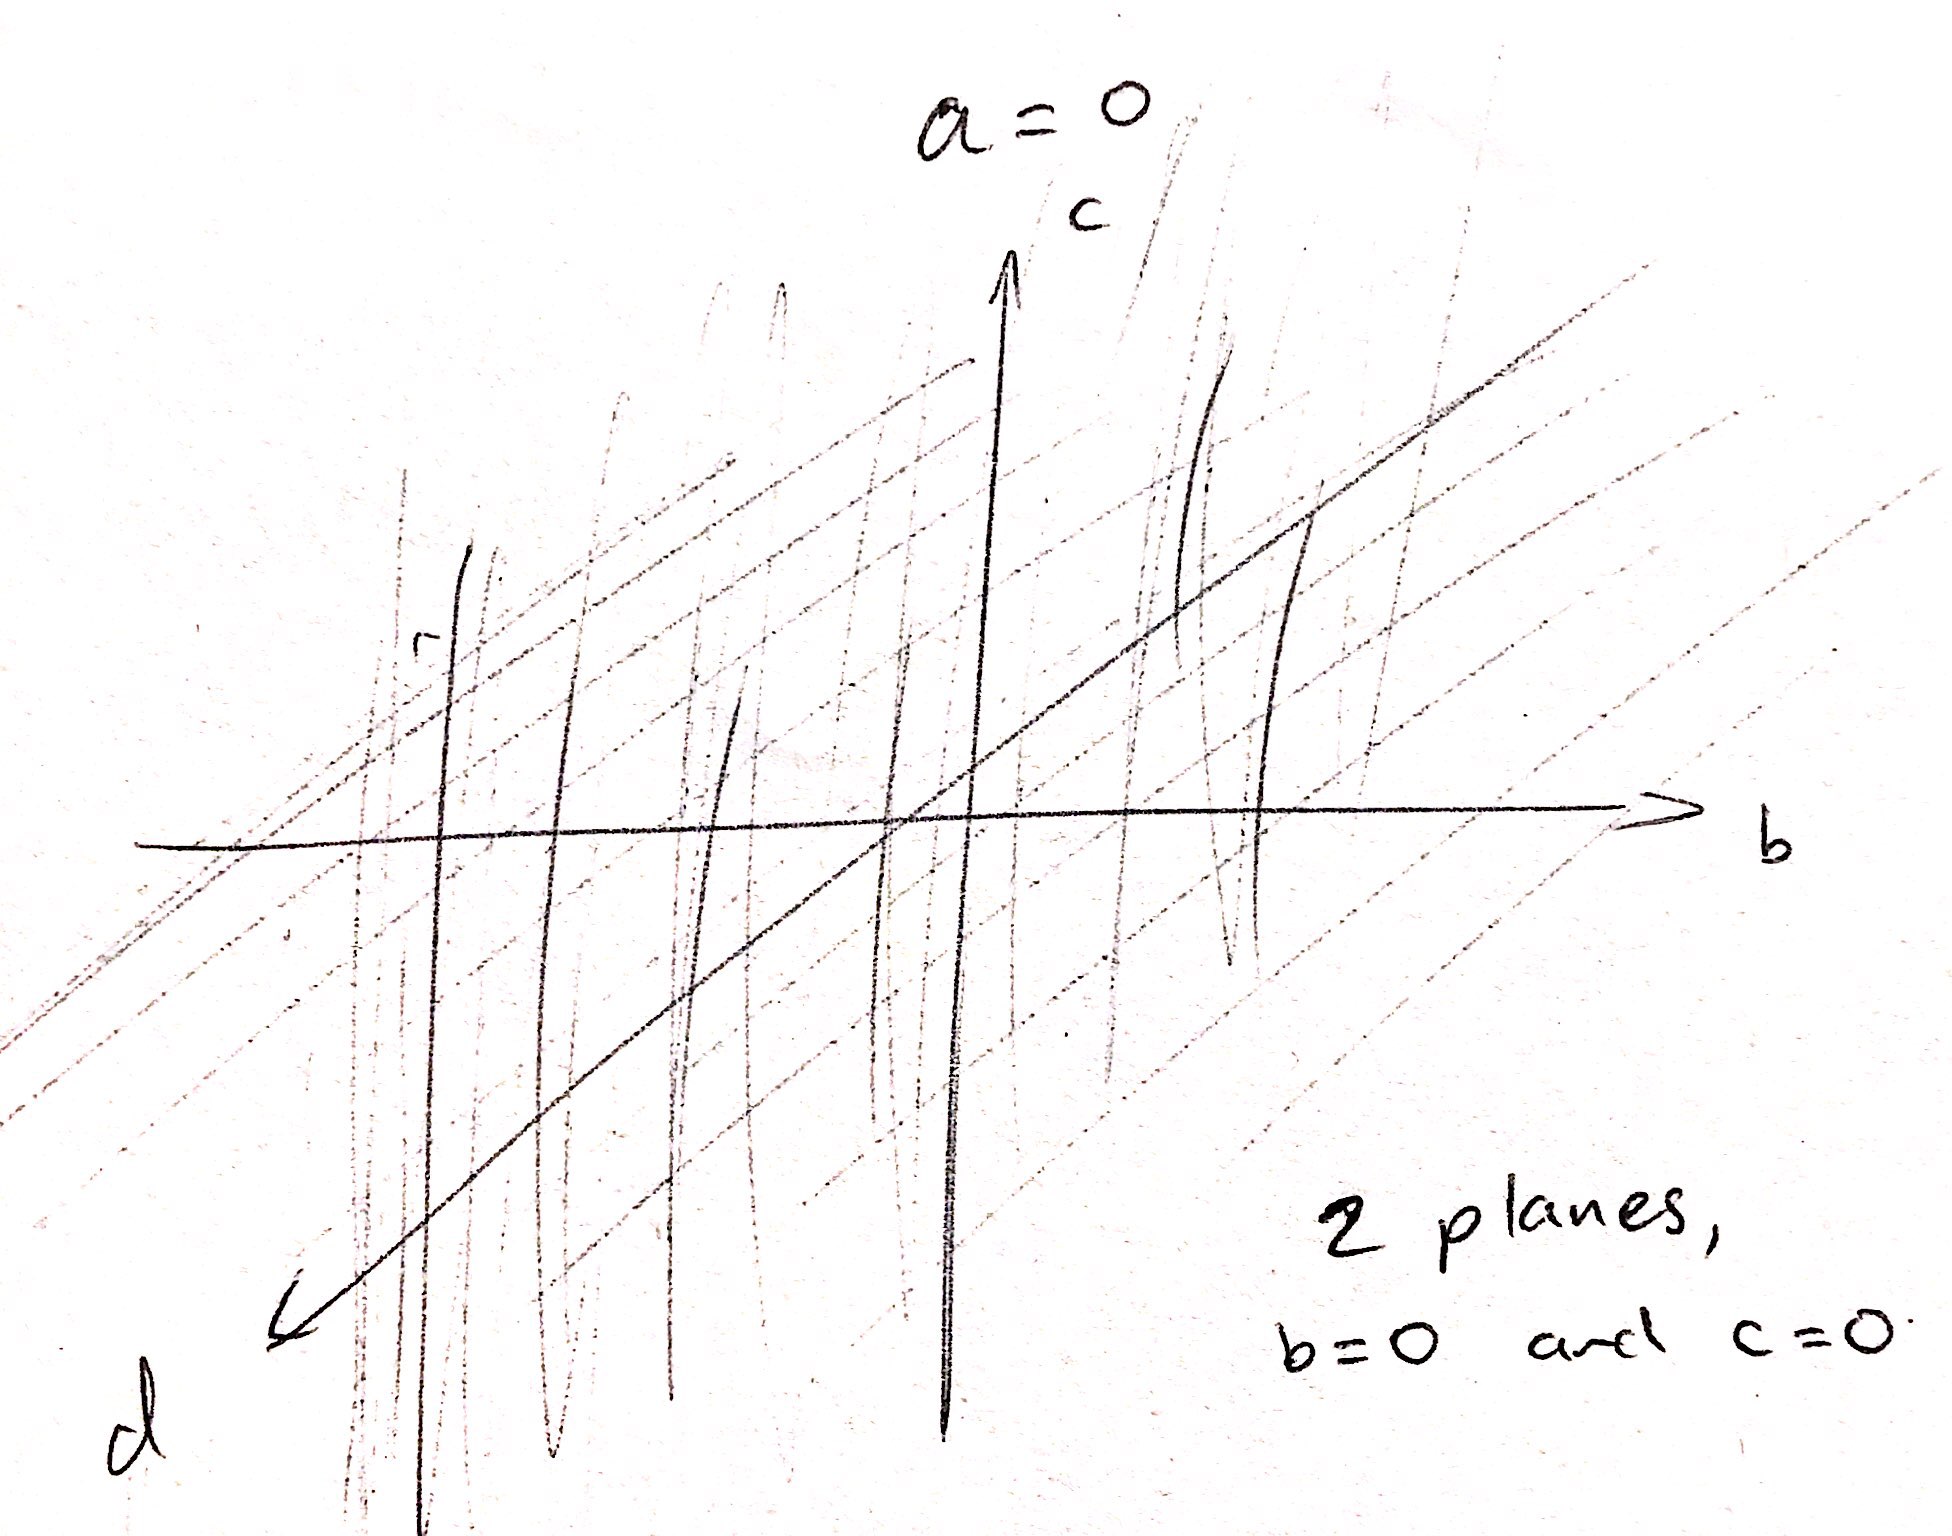 a = 0
c
b
d
2 planes,
b=0 and c=0.